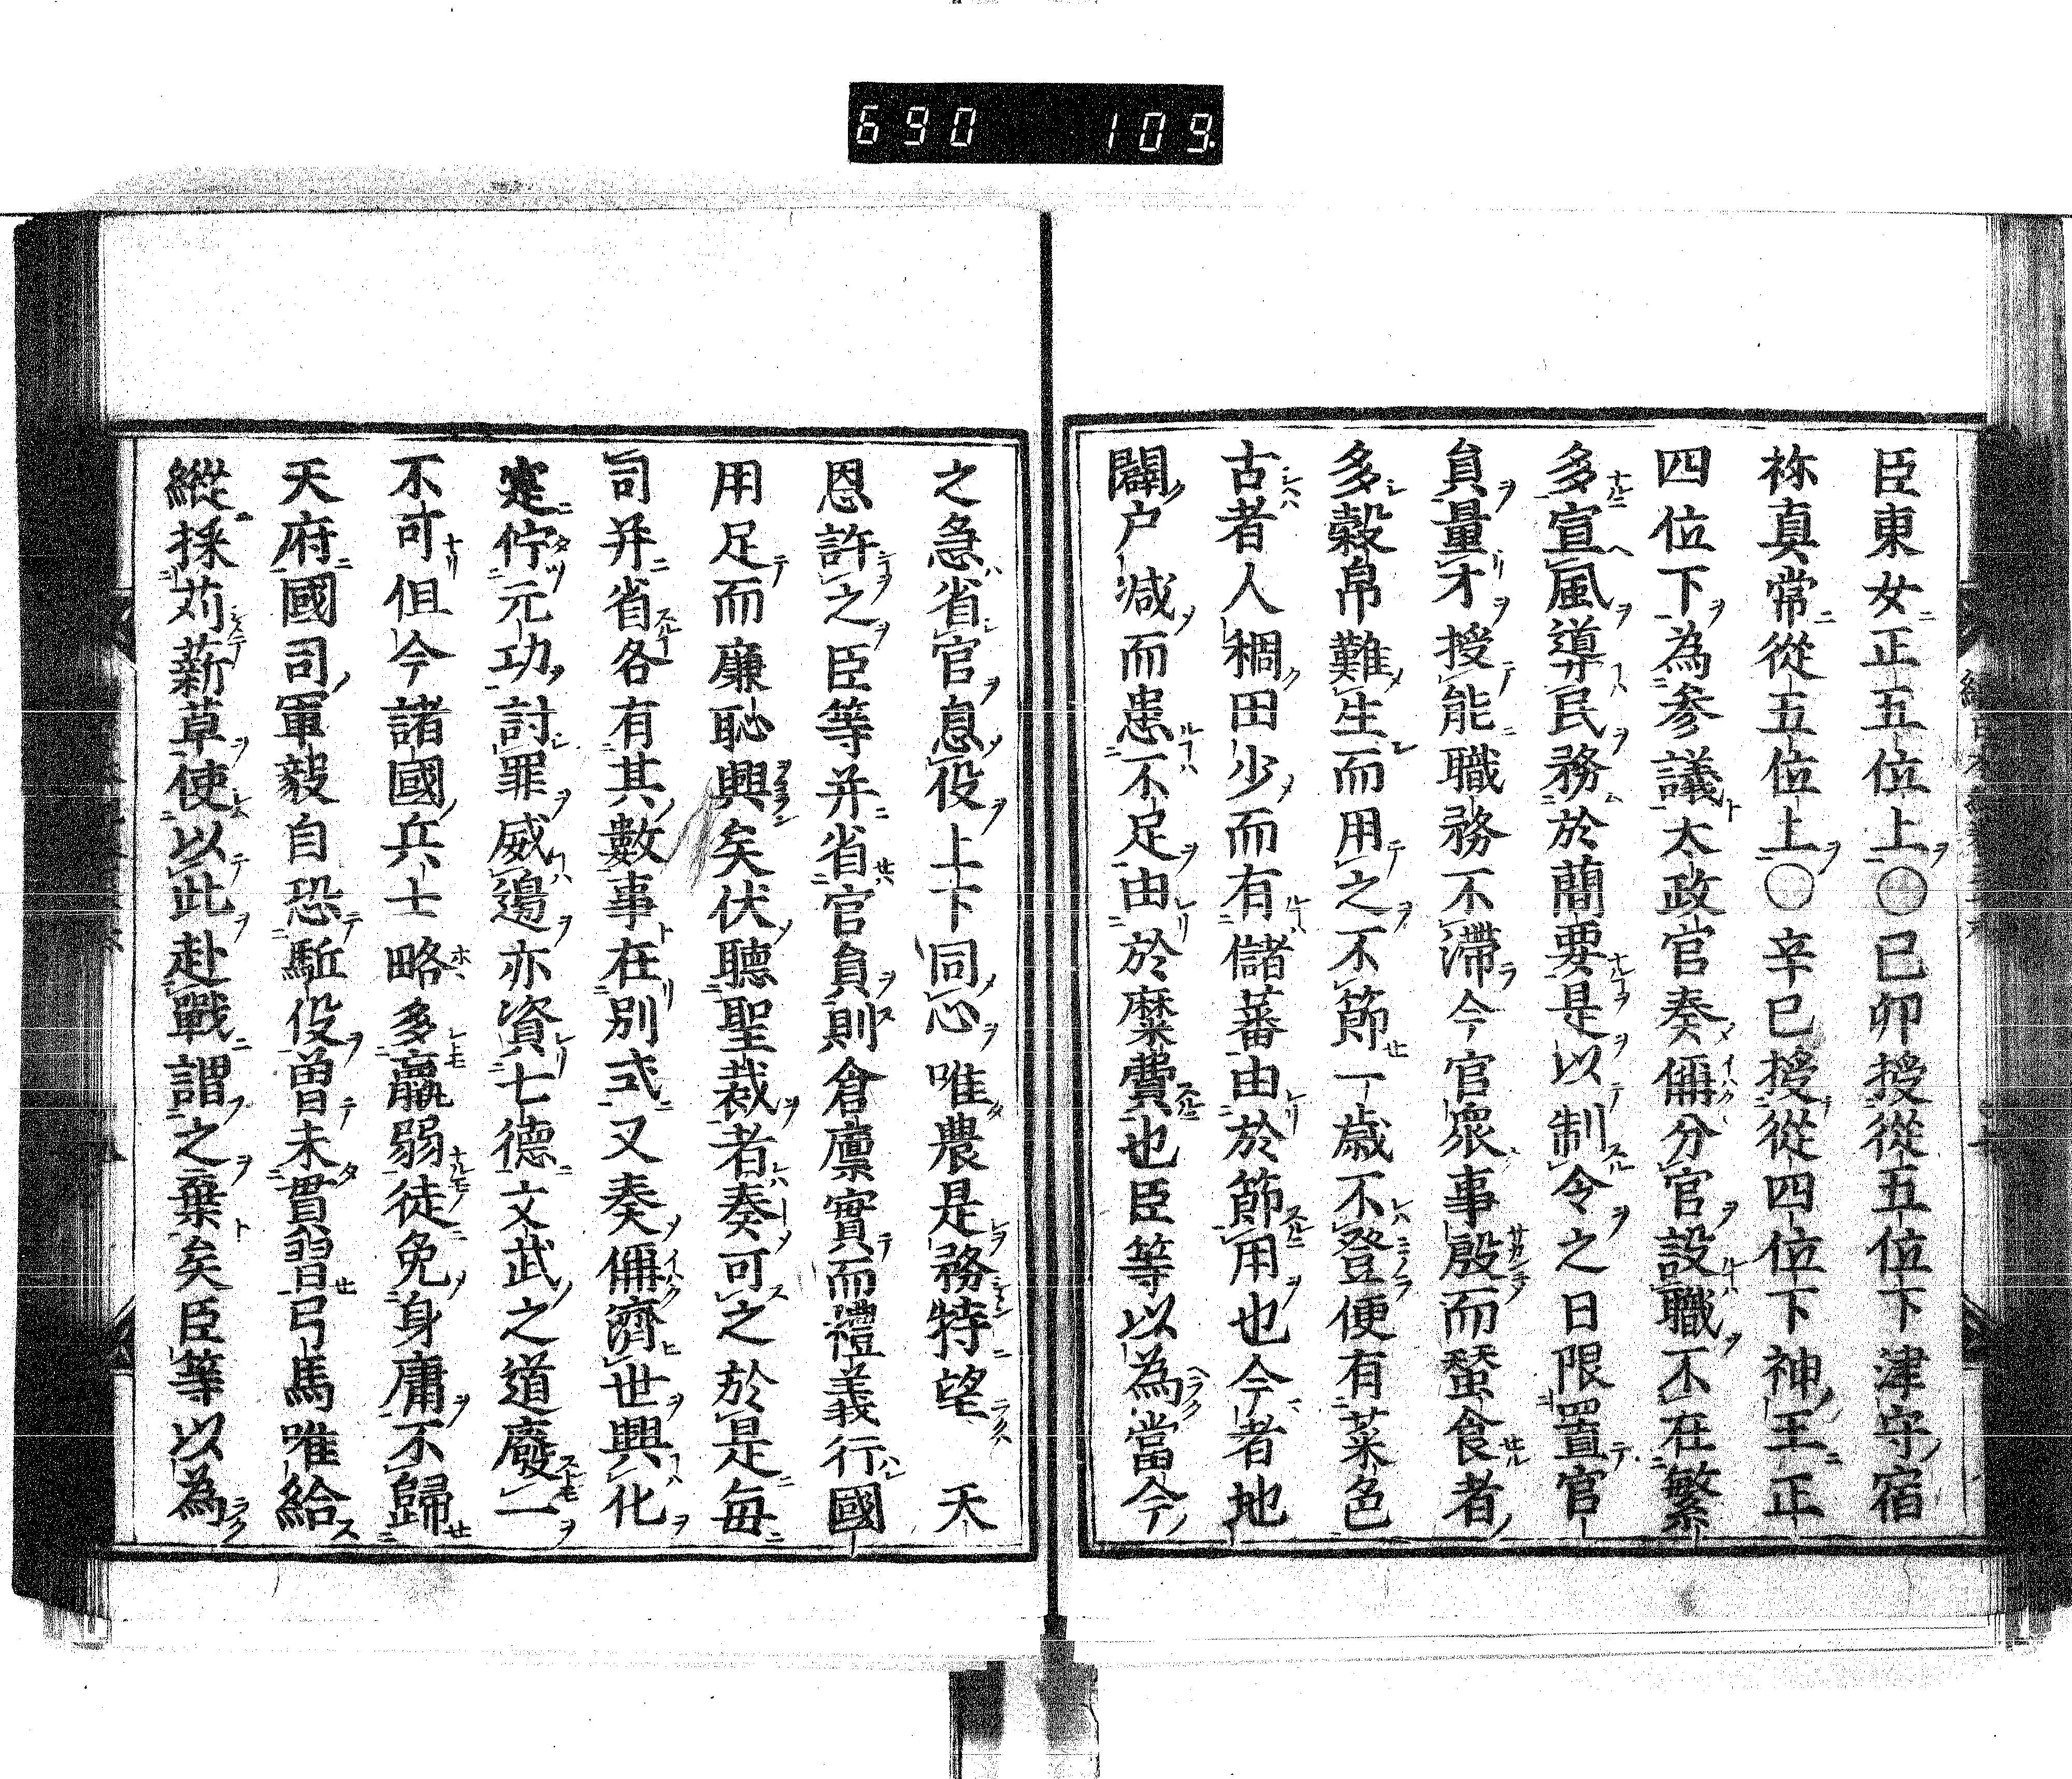 690 109
臣東女正五位上〇已卯授從五位下津守宿
祢真常從五位上〇辛已授從四位下神王正
四位下為参議太政官奏偁分官設職不在繁
多宣風導民務於蕳要是以制令之日限置官
負量才授能職務不滯今官衆事殷而蝅食者
多穀帛難生而用之不節一歳不登便有菜色
古者人稠田少而有儲蓄由於節用也今者地
闢户減而患不足由於糜費也臣等以為當今
之急省官息役上下同心唯農是務特望 天
恩許之臣等并省官負則倉廩實而禮義行國
用足而廉恥興矣伏聽聖裁者奏可之於是毎
司并省各有其數事在別式又奏偁濟世興化
寔佇元功討罪威邊亦資七德文武之道廢一
不可但今諸國兵士略多羸弱徒免身庸不歸
天府國司軍毅自恐駈役曽未貫習弓馬唯給
縱採苅薪草使以此赴戰謂之棄矣臣等以為